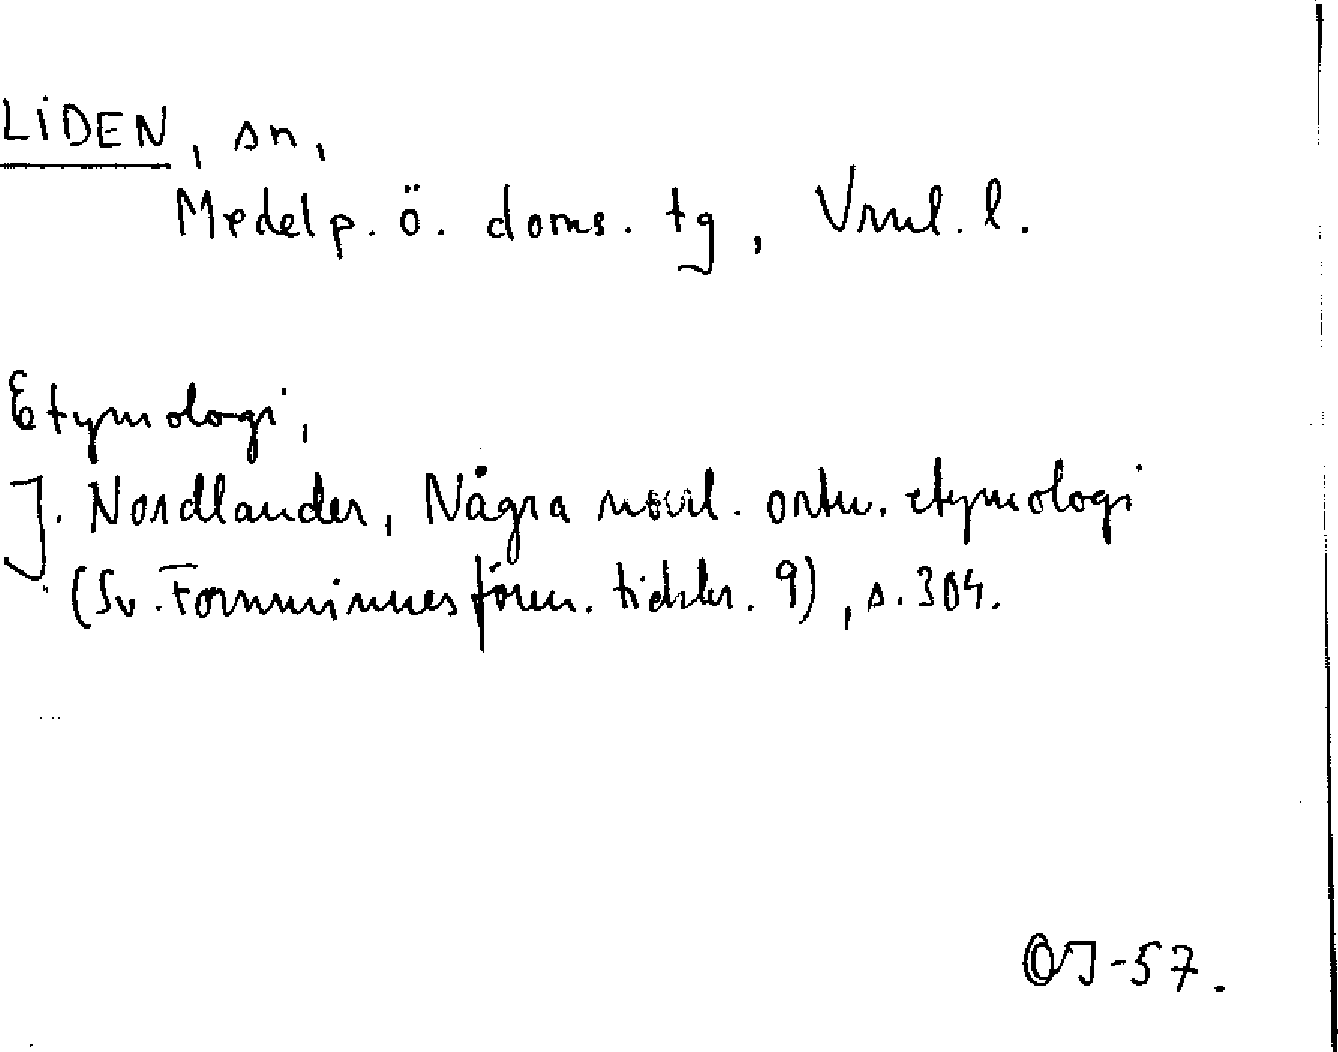 LIDEN, sn,
Medelp. ö. doms. tg, Vrnl. l.
Etymologi,
J. Nordlander, Några norrl. ortn. etymologi
(Sv. Fornminnesfören. tidskr. 9), s. 304.
OJ-57.